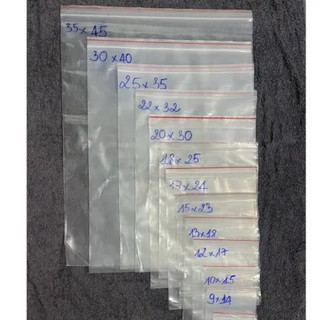 35x45
30x40
25x35
22x32
20x30
18x25
17x24
15x23
13x18
12x17
10x15
9x14